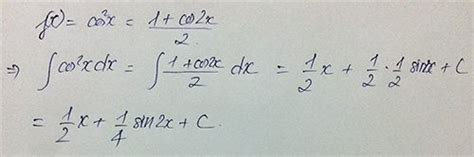 f(x) = cos²x = (1 + cos2x)/2.
⇒ ∫cos²x dx = ∫(1 + cos2x)/2 dx = 1/2 x + 1/2 · 1/2 sin2x + C
= 1/2 x + 1/4 sin2x + C.